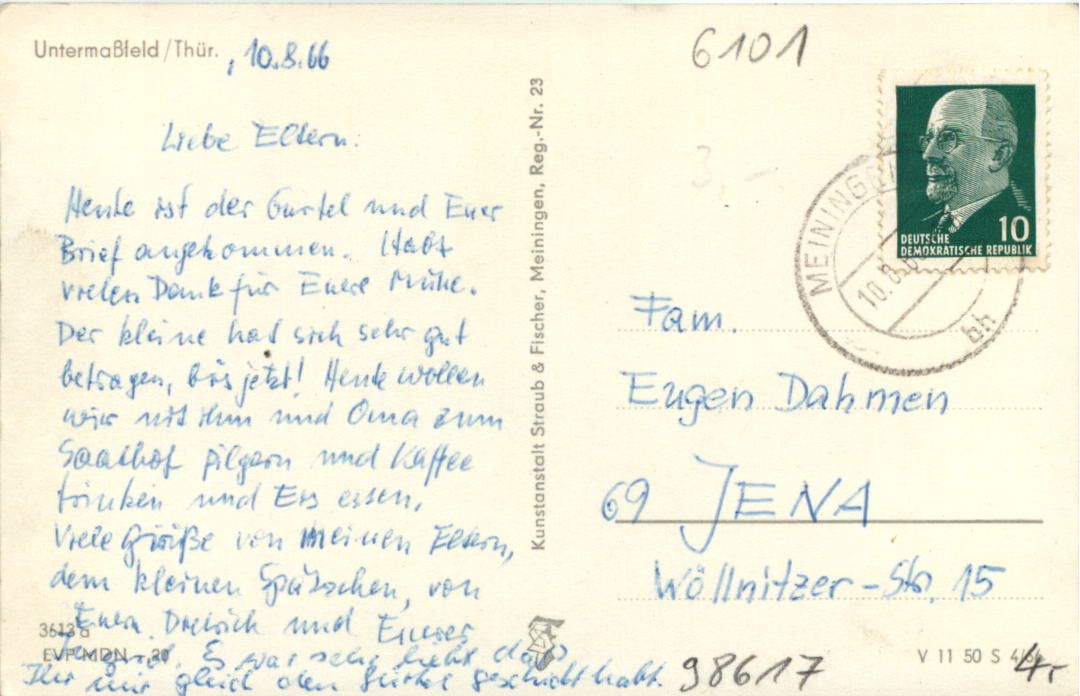 Untermaßfeld/Thür. , 10.8.66
Liebe Eltern.
Heute ist der Gürtel und Euer
Brief angekommen. Habt
vielen Dank für Euere Mühe.
Der kleine hat sich sehr gut
betragen, bis jetzt! Heute wollen
wir mit ihm und Oma zum
Saalhof pilgern und Kaffee
trinken und Eis essen.
Viele Grüße von meinen Eltern,
dem kleinen Spätzchen, von
Euern und Eurer
Es war sehr lieb daß
Ihr mir gleich den Gürtel geschickt habt.
3613 a
EVP MDN -,20
Kunstanstalt Straub & Fischer, Meiningen, Reg.-Nr. 23
6101
3,-
MEININGEN
10.8.66
bh
10
DEUTSCHE
DEMOKRATISCHE REPUBLIK
Fam.
Eugen Dahmen
69 JENA
Wöllnitzer-Str. 15
V 11 50 S 4/66
98617
4,-